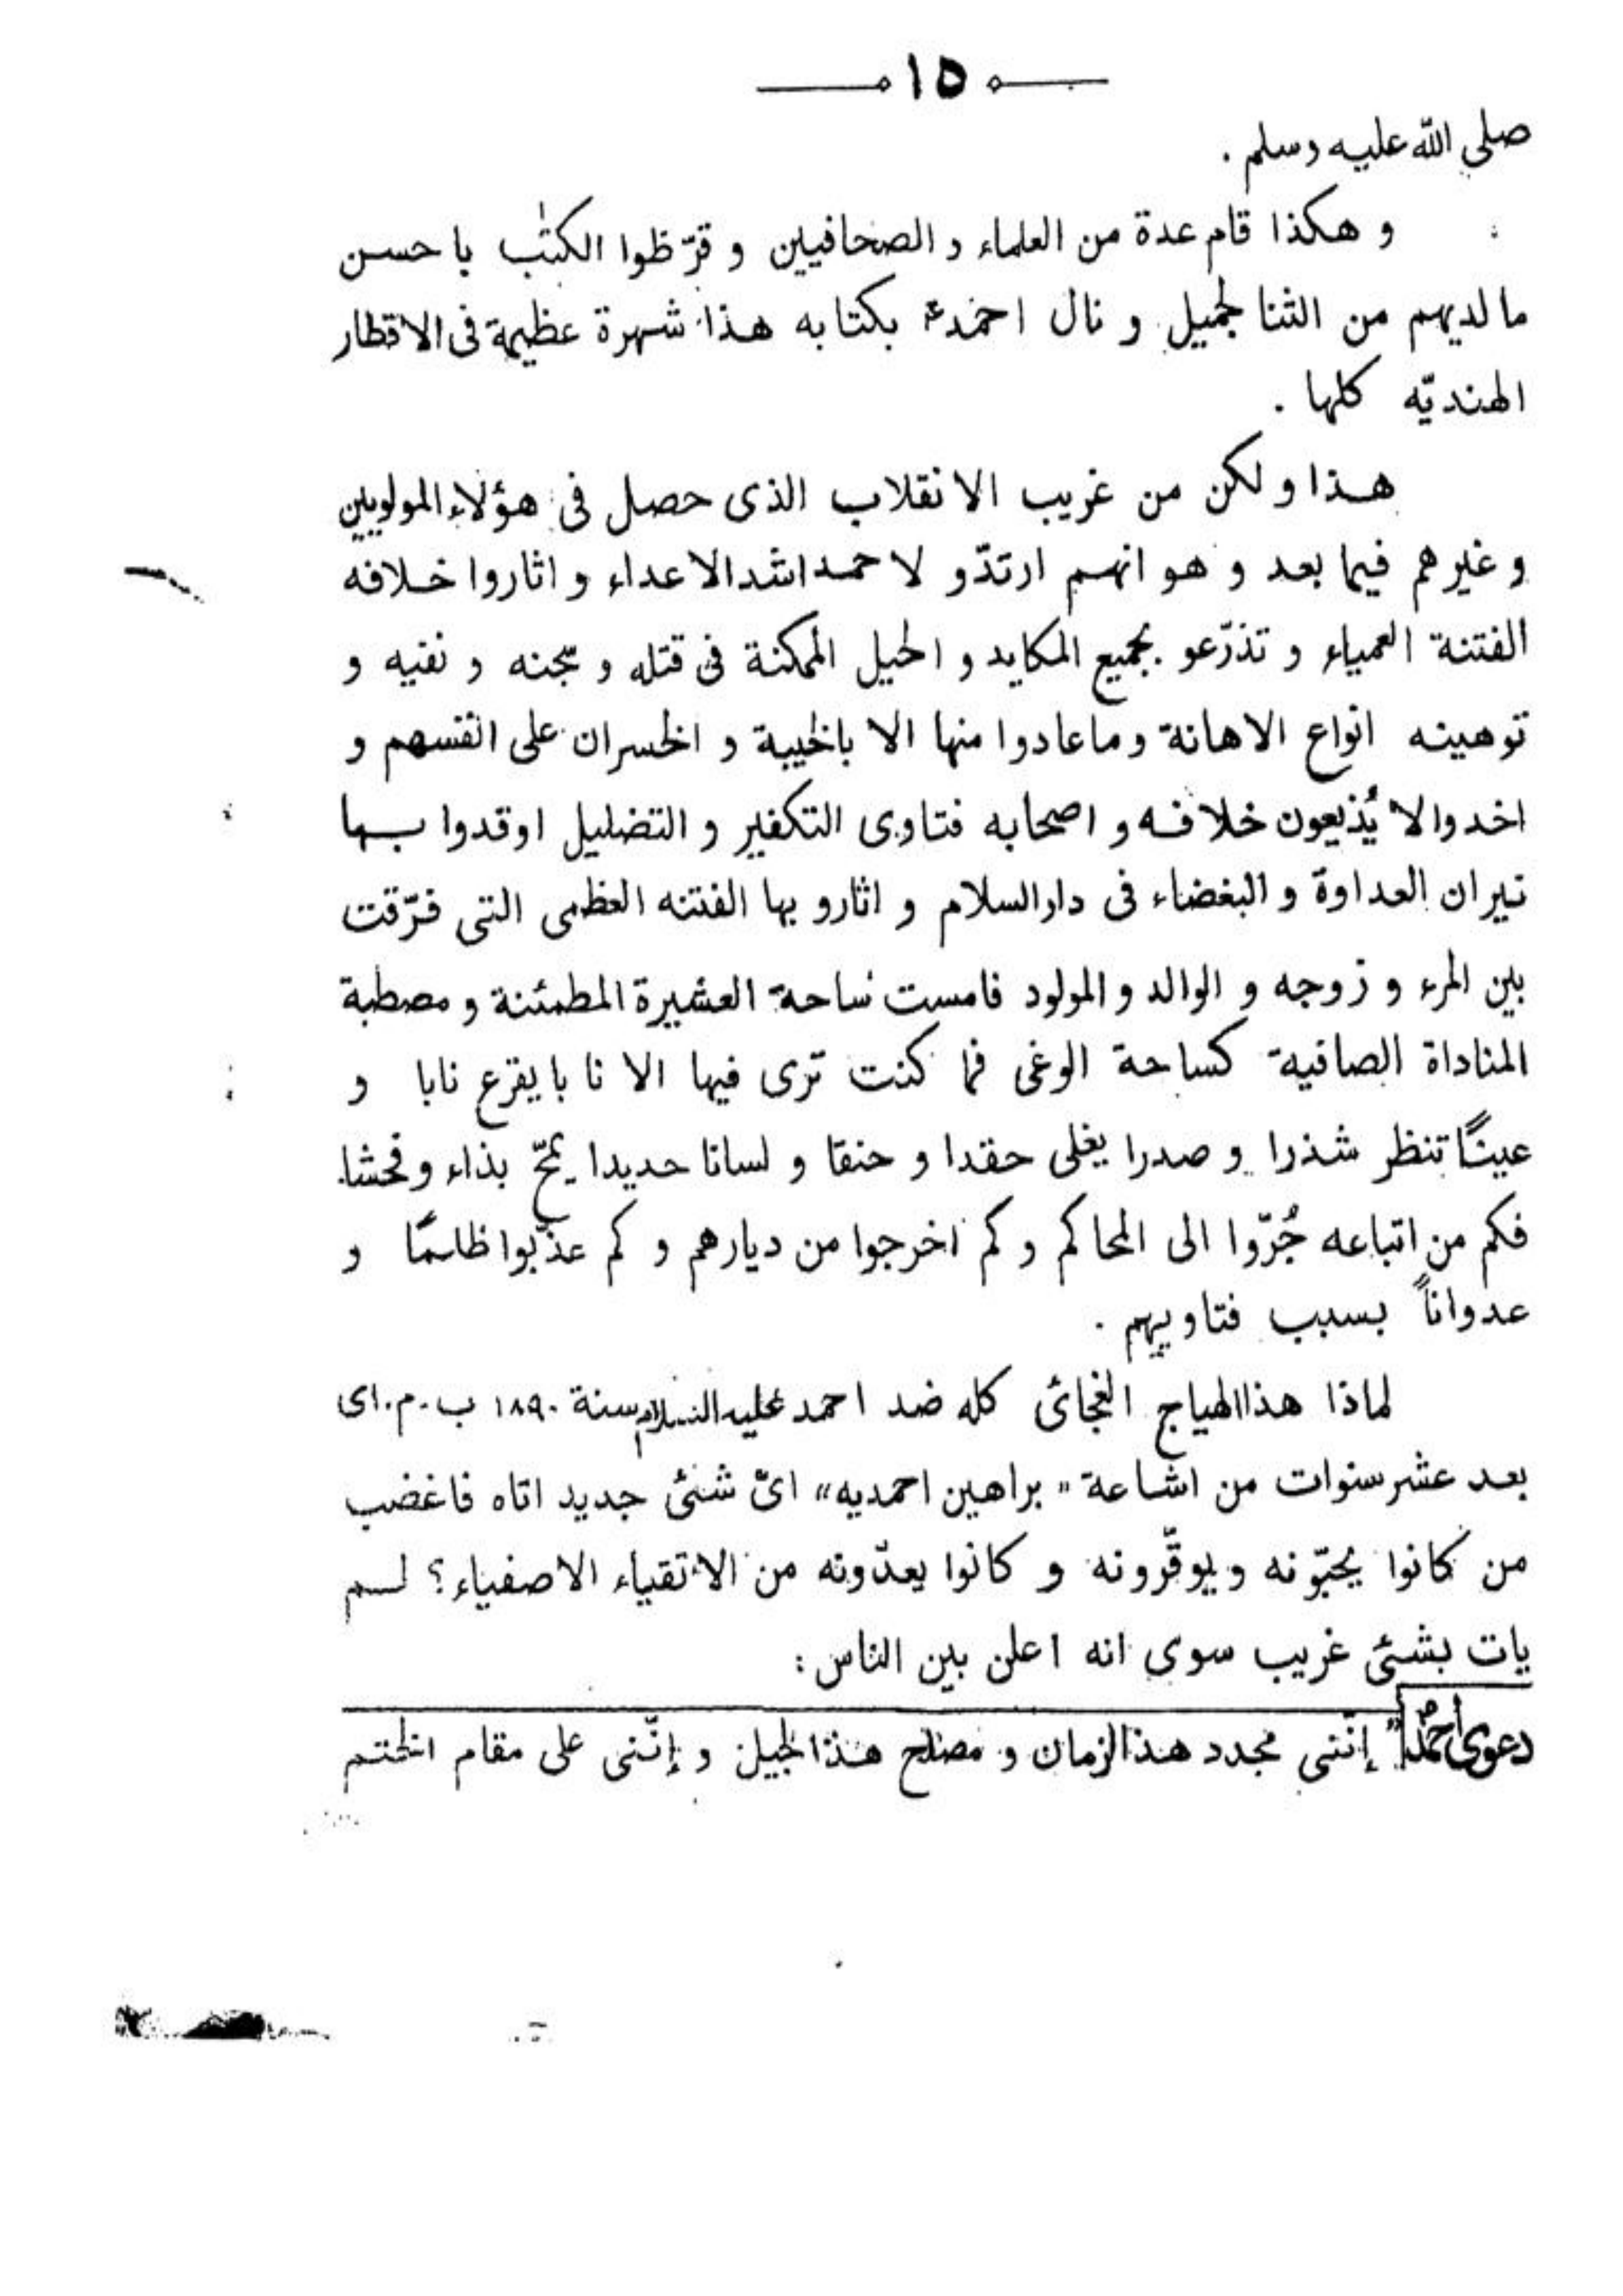 ١٥
صلى الله عليه وسلم .
و هكذا قام عدة من العلماء و الصحافيين و قرّظوا الكتٰب باحسن
مالديهم من الثنا لجميل و نال احمدؑ بكتابه هذا شهرة عظيمة فى الاقطار
الهنديّه كلها .
هذا و لكن من غريب الانقلاب الذى حصل فى هؤلاء المولويين
و غيرهم فيما بعد و هو انهم ارتدّو لاحمد اشد الاعداء و اثاروا خلافه
الفتنة العمياء و تذرّعو بجميع المكايد و الحيل الممكنة فى قتله و سجنه و نفيه و
توهينه انواع الاهانة و ماعادوا منها الا بالخيبة و الخسران على انفسهم و
اخدوالا يُذيعون خلافه و اصحابه فتاوى التكفير و التضليل اوقدوا بها
نيران العداوة و البغضاء فى دارالسلام و اثارو بها الفتنه العظمى التى فرّقت
بين المرء و زوجه و الوالد و المولود فامست ساحة العشيرة المطمئنة و مصطبة
المناداة الصافية كساحة الوغى فما كنت ترى فيها الا نابا يقرع نابا و
عينًا تنظر شذرا و صدرا يغلى حقدا و حنقا و لسانا حديدا يمجّ بذاء و فحشا.
فكم من اتباعه جُرّوا الى المحاكم و كم اخرجوا من ديارهم و كم عذّبوا ظلمًا و
عدواناً بسبب فتاويهم .
لماذا هذاالهياج الفجائى كله ضد احمد عليه السلام سنة ١٨٩٠ ب.م.اى
بعد عشر سنوات من اشاعة "براهين احمديه" اىّ شئى جديد اتاه فاغضب
من كانوا يحبّونه و يوقّرونه و كانوا يعدّونه من الاتقياء الاصفياء؟ لم
يات بشئى غريب سوى انه اعلن بين الناس :
دعوى احمدؑ "إنّنى مجدد هذالزمان و مصلح هذالجيل و إنّنى على مقام الختم